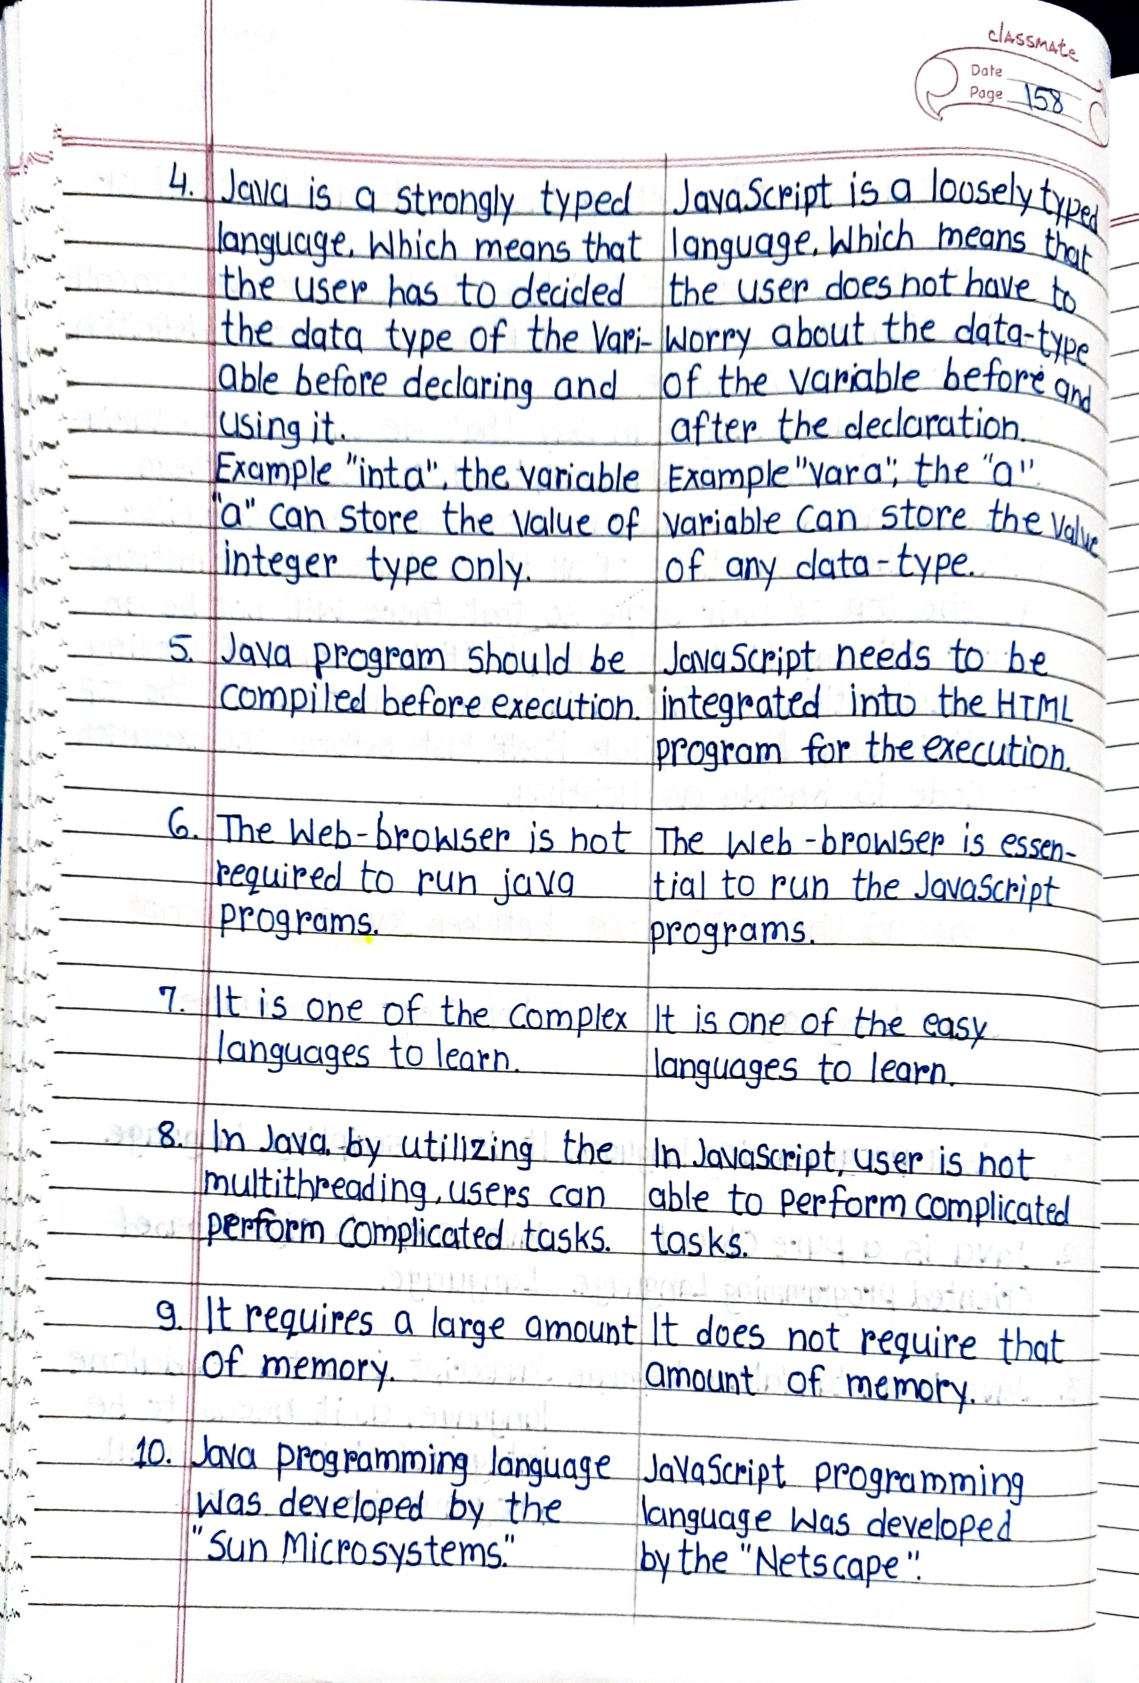 classmate
Date
Page 158
4. Java is a strongly typed
language. Which means that
the user has to decided
the data type of the vari-
able before declaring and
using it.
Example "int a", the variable
"a" can store the value of
integer type only.
JavaScript is a loosely typed
language. Which means that
the user does not have to
worry about the data-type
of the variable before and
after the declaration.
Example "var a"; the "a"
variable can store the value
of any data-type.
5. Java program should be
compiled before execution.
JavaScript needs to be
integrated into the HTML
program for the execution.
6. The Web-browser is not
required to run java
programs.
The Web-browser is essen-
tial to run the JavaScript
programs.
7. It is one of the complex
languages to learn.
It is one of the easy
languages to learn.
8. In Java, by utilizing the
multithreading, users can
perform complicated tasks.
In JavaScript, user is not
able to perform complicated
tasks.
9. It requires a large amount
of memory.
It does not require that
amount of memory.
10. Java programming language
was developed by the
"Sun Microsystems."
JavaScript programming
language was developed
by the "Netscape".